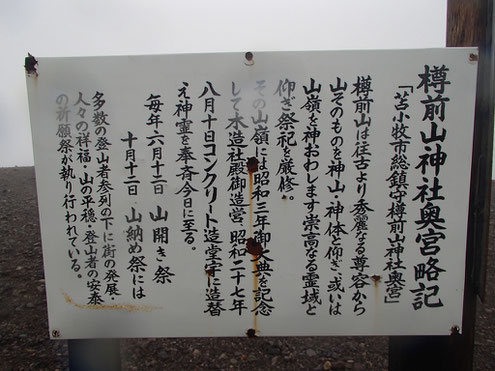 樽前山神社奥宮略記
「苫小牧市総鎮守樽前山神社奥宮」
樽前山は往古より秀麗なる尊容から
山そのものを神山・神体と仰ぎ、或いは
山嶺を神おわします崇高なる霊域と
仰ぎ祭祀を厳修。
その山嶺に昭和三年御大典を記念
して木造社殿御造営・昭和二十七年
八月十日コンクリート造堂宇に造替
え神霊を奉斉今日に至る。
毎年六月十二日 山開き祭
十月十二日 山納め祭には
多数の登山者参列の下に街の発展
人々の祥福・山の平穏・登山者の安泰
の祈願祭が執り行われている。